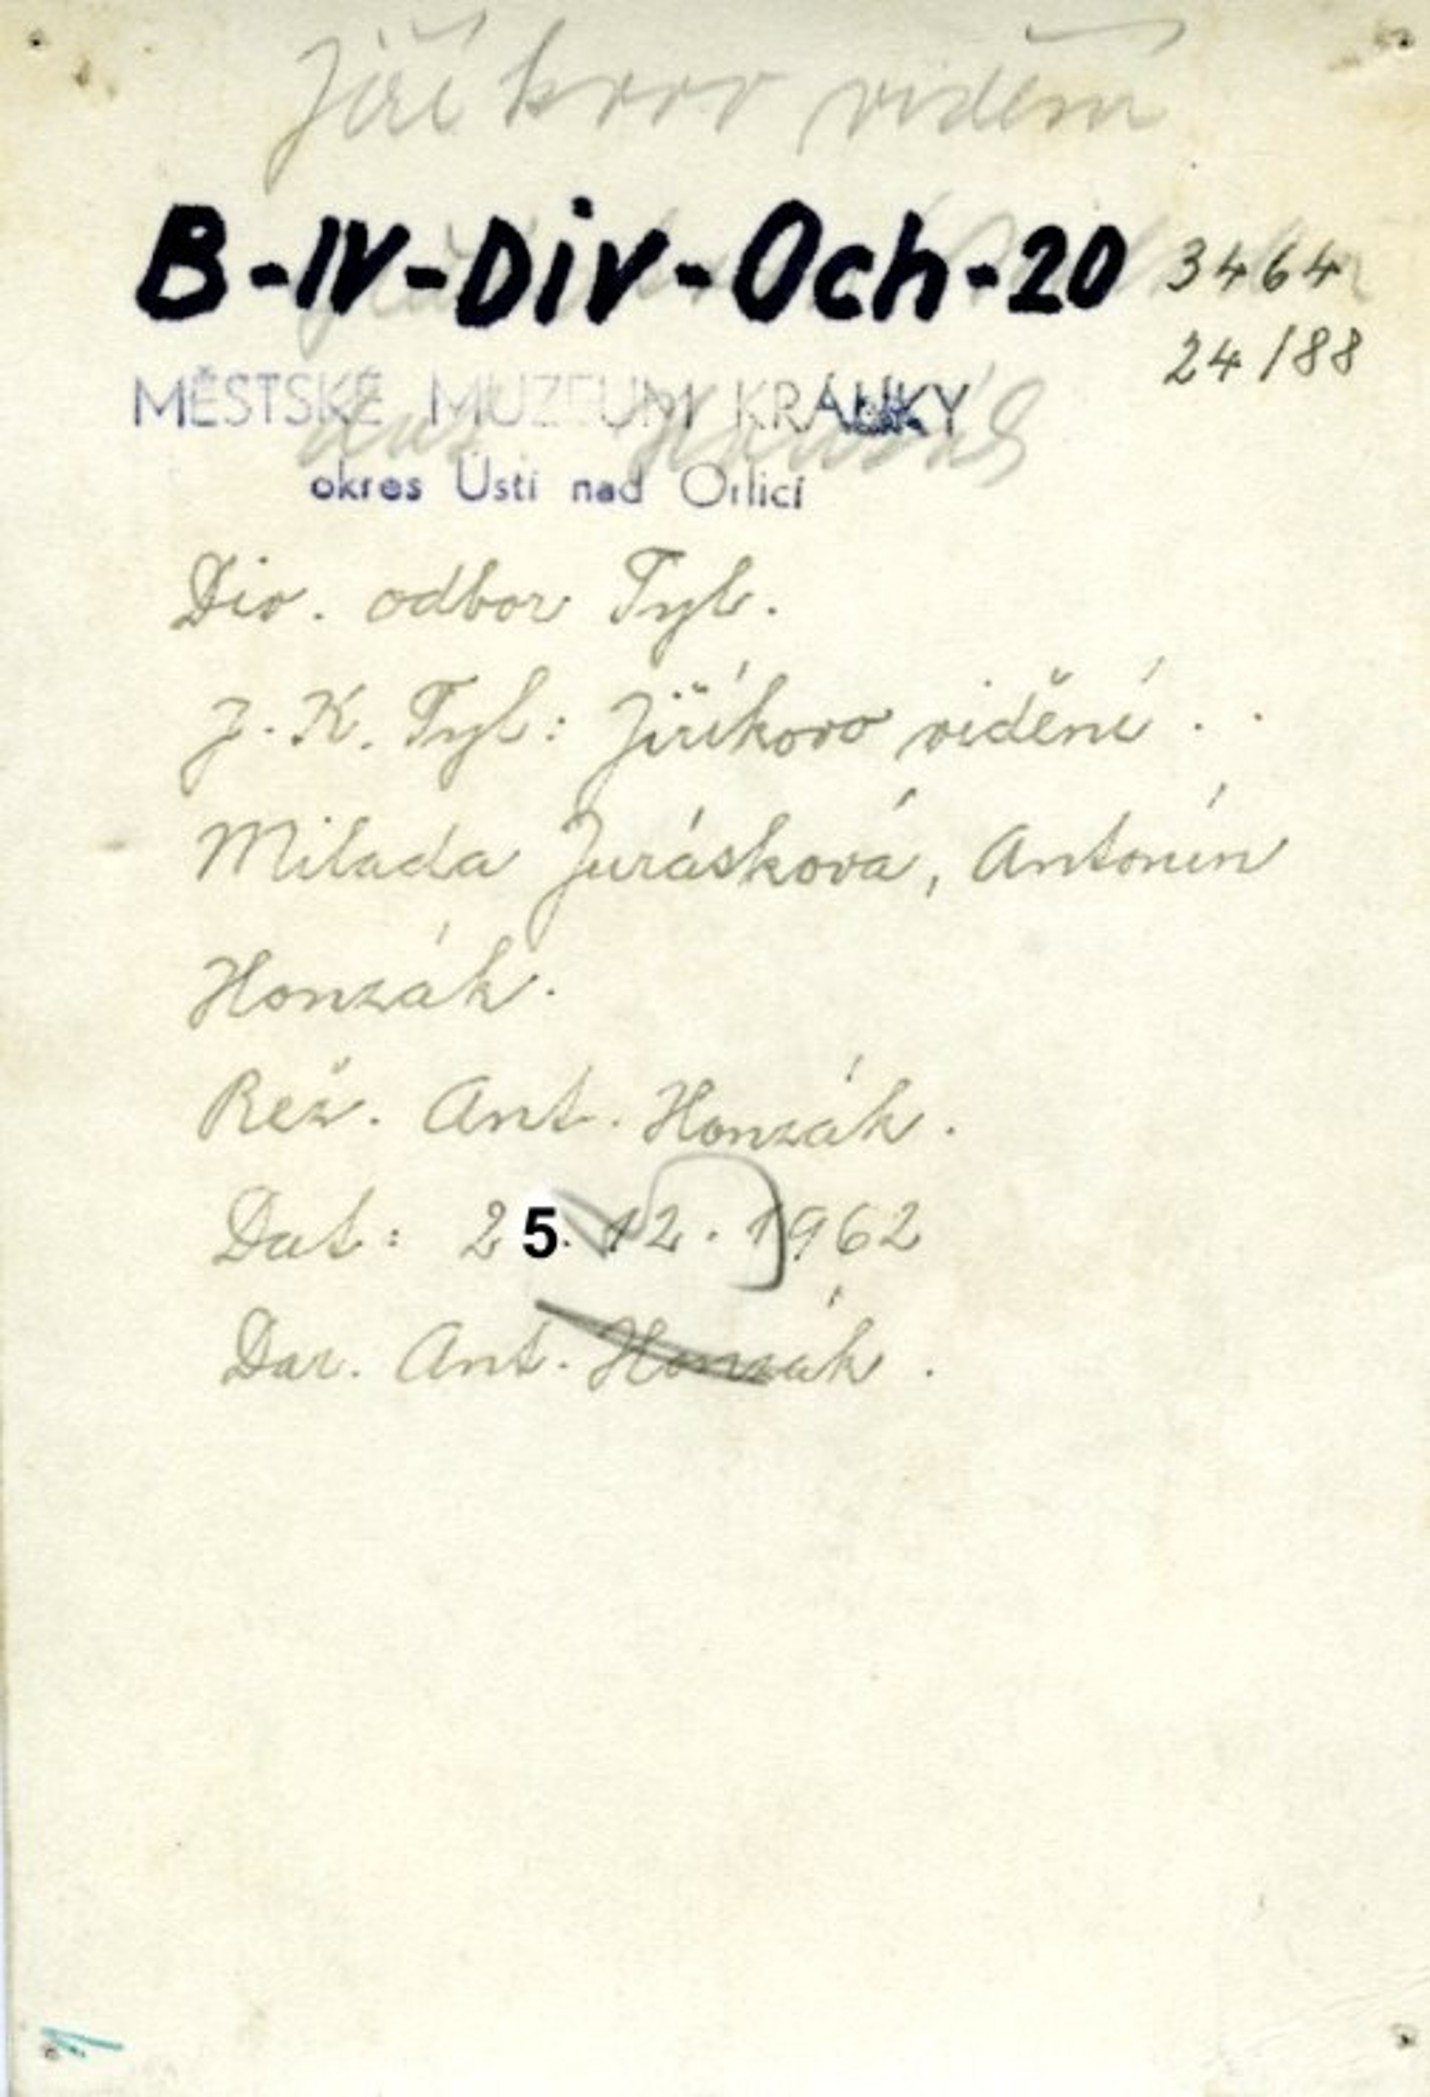 Jiříkovo vidění
B-IV-Div-Och-20 3464
24/88
MĚSTSKÉ MUZEUM KRÁLÍKY
okres Ústí nad Orlicí
Div. odbor Tyl.
J. K. Tyl: Jiříkovo vidění.
Milada Jurásková, Antonín
Honzák.
Rež. Ant. Honzák.
Dat: 25. 12. 1962
Dar. Ant. Honzák.